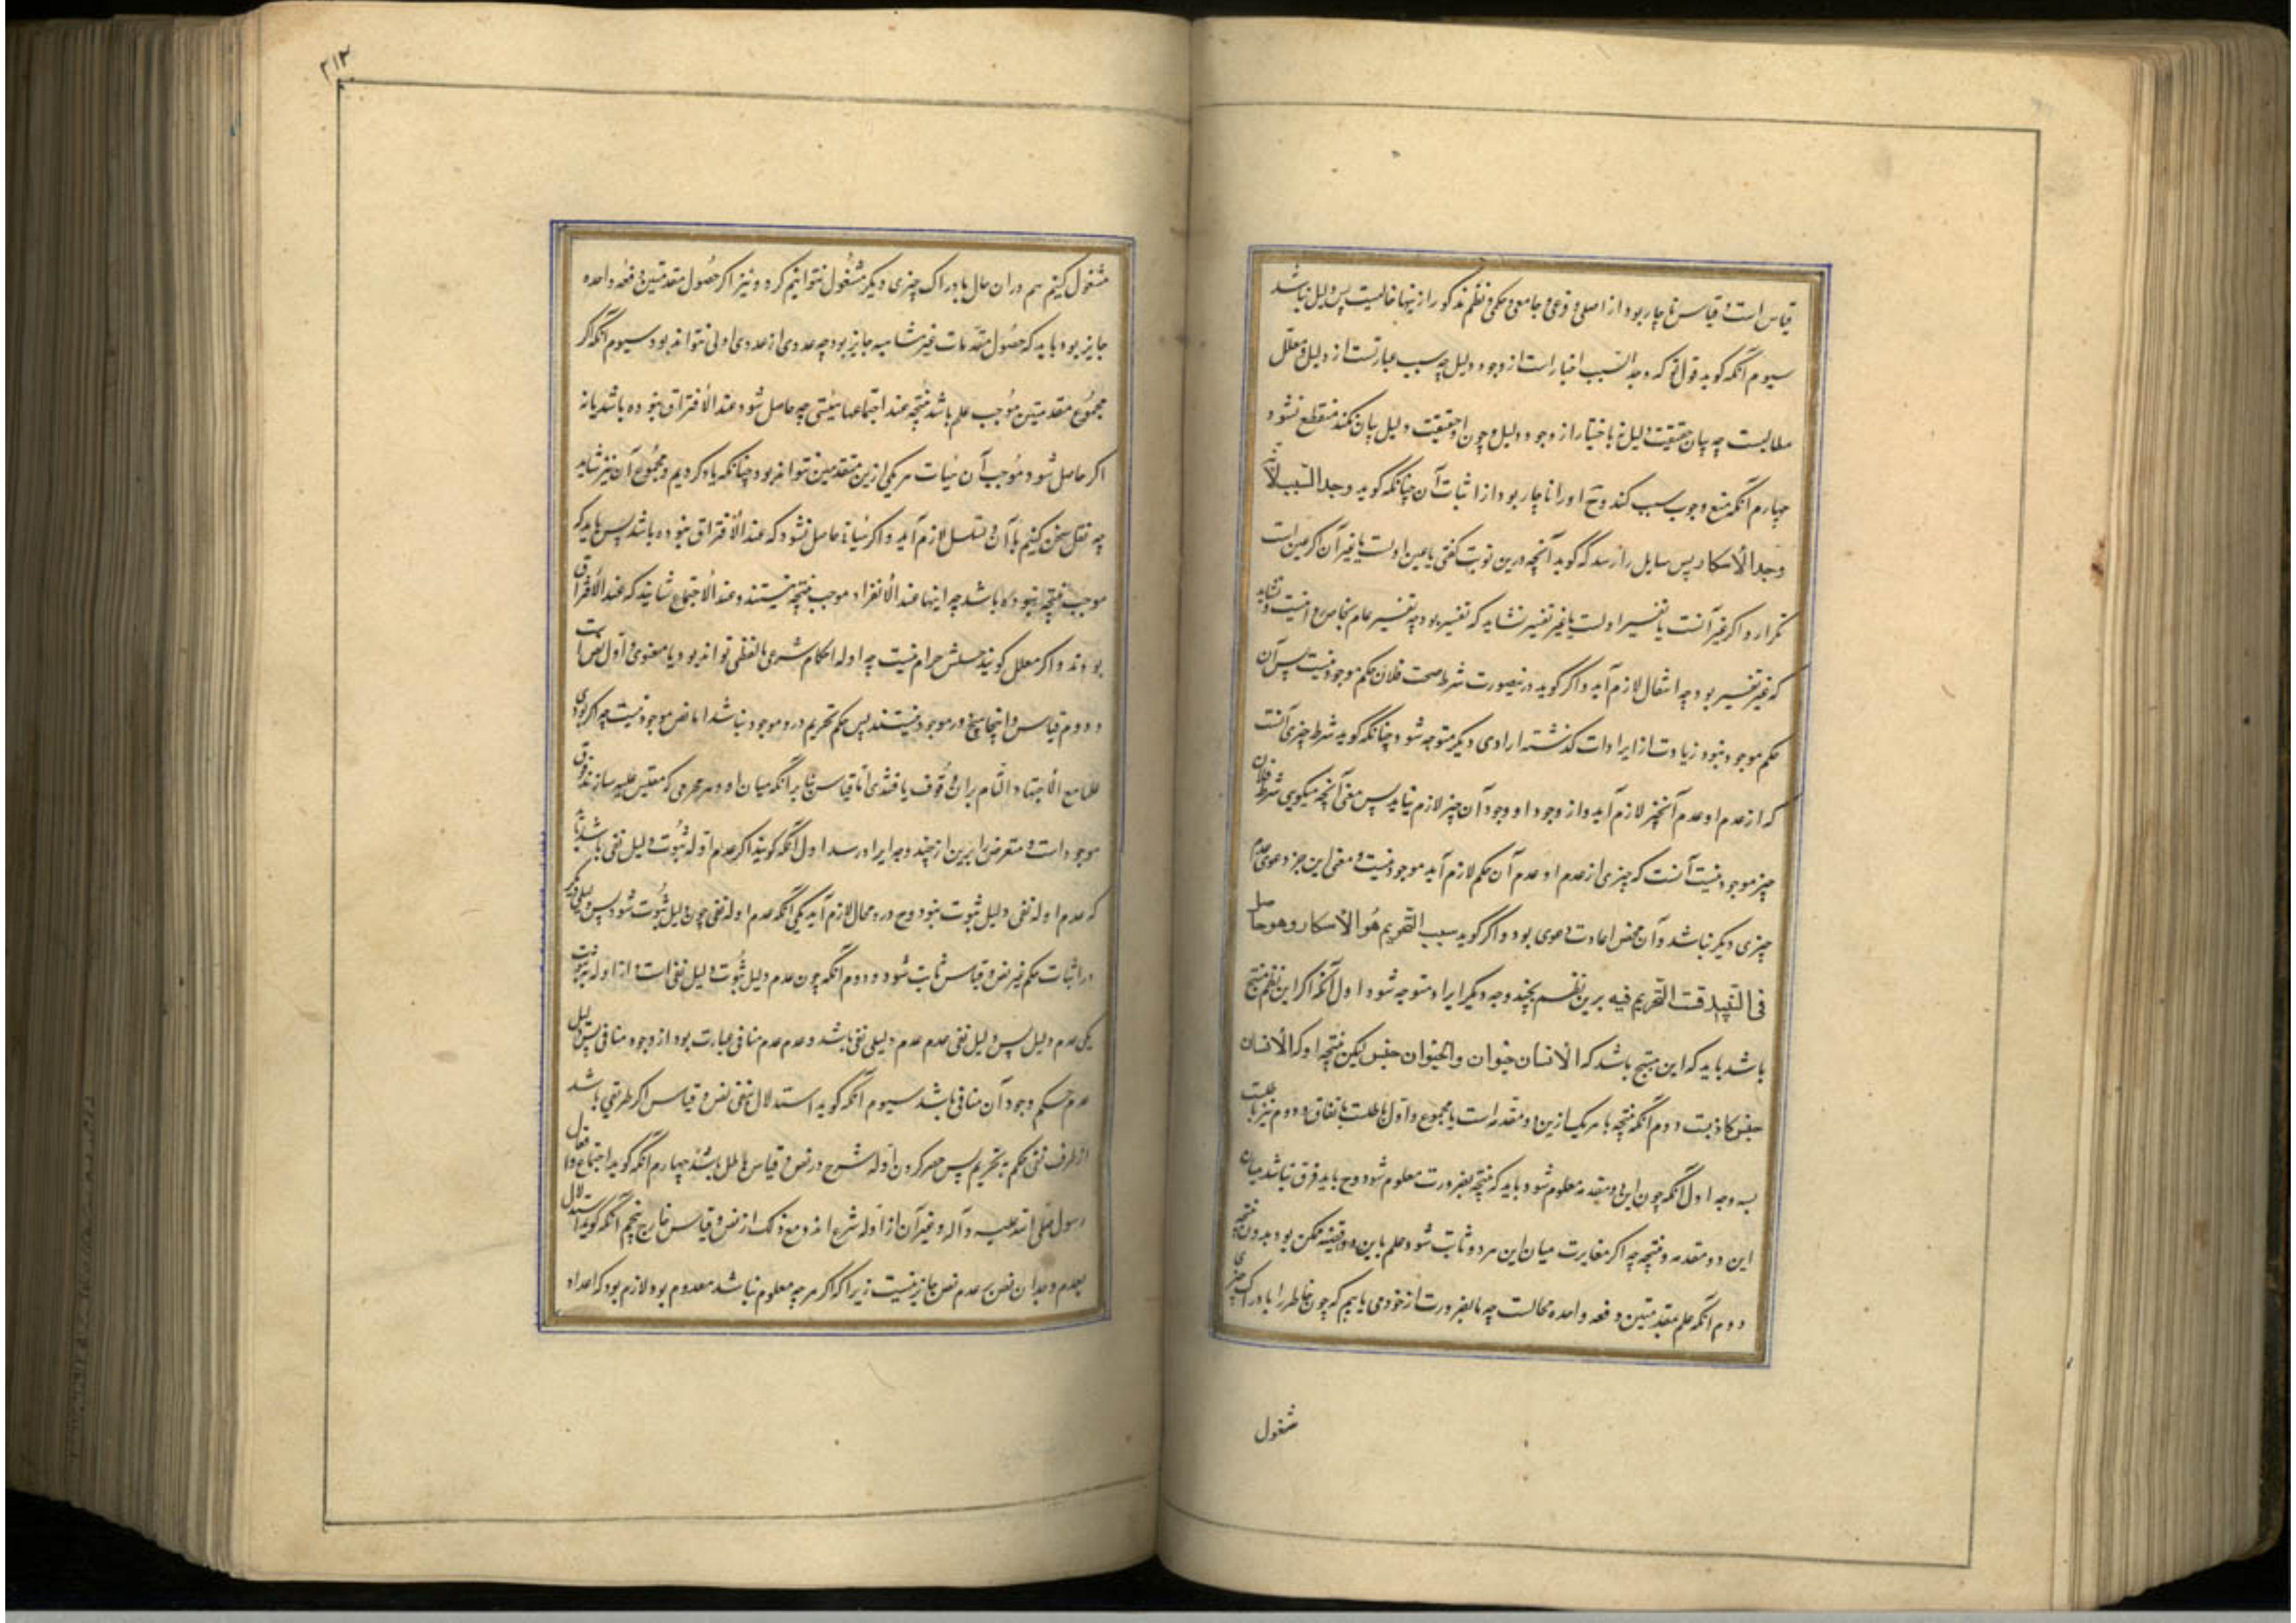 قیاس است و قیاس ناچار بود از اصلی و فرعی و جامعی و حکمی و نظم مذکور ازینها خالیست پس دلیل نباشد
سیوم آنکه کوید قول تو که وجد السبب اخبار است از وجود دلیل چه سبب عبارتست از دلیل و معلل
مطالبست چه بیان حقیقت دلیل نه با خبار از وجود دلیل و چون او حقیقت دلیل بیان نکند منقطع شود
چهارم آنکه منع وجوب سبب کند و ح او را ناچار بود از اثبات آن چنانکه کوید وجد السبب لانه
وجد الاسکار پس سایل را رسد که کوید آنچه درین نوبت کفتی یا عین اولست یا غیر آن اکر عین است
تکرار و اکر غیر آنست یا تفسیر اولست یا غیر تفسیر نشاید که تفسیر بود چه تفسیر عام بخاص روا نیست و نشاید
که غیر تفسیر بود چه انتقال لازم آید و اکر کوید درینصورت شرط صحت فلان حکم موجود نیست پس آن
حکم موجود نبود زیادت از ایرادات کذشته ایرادی دیکر متوجه شود چنانکه کوید شرط چیزی آنست
که از عدم او عدم آنچیز لازم آید و از وجود او وجود آن چیز لازم نیاید پس معنی آنچه میکویی شرط فلان
چیز موجود نیست آنست که چیزی از عدم او عدم آن حکم لازم آید موجود نیست و معنی این جز دعوی عدم
چیزی دیکر نباشد و آن محض اعادت دعوی بود و اکر کوید سبب التحریم هو الاسکار و هو حاصل
فی النبیذ فثبت التحریم فیه برین نظم بچند وجه دیکر ایراد متوجه شود اول آنکه اکر این نظم منتج
باشد باید که این منتج باشد که الانسان حیوان والحیوان جنس لیکن نتیجه او که الانسان
جنس کاذبست دوم آنکه نتیجه با هر یک ازین دو مقدمه است یا مجموع و اول باطلست باتفاق و دوم نیز باطلست
بسه وجه اول آنکه چون این دو مقدمه معلوم شود باید که نتیجه بضرورت معلوم شود و ح باید فرق نباشد میان
این دو مقدمه و نتیجه چه اکر مغایرت میان این هر دو ثابت شود علم باین دو قضیه ممکن بود بدون نتیجه
دوم آنکه علم بمقدمتین دفعه واحده محالست چه بالضرورت از خود می یابیم که چون خاطر را بادراک چیزی
مشغول
۲۱۲
مشغول کنیم هم در ان حال بادراک چیزی دیکر مشغول نتوانیم کرد و نیز اکر حصول مقدمتین دفعه واحده
جایز بود باید که حصول مقدمات غیر متناهیه جایز بود چه عددی از عددی اولی نتواند بود سیوم آنکه اکر
مجموع مقدمتین موجب علم باشد نتیجه عند اجتماعهما هیئتی چه حاصل شود عند الافتراق نبوده باشد یا نه
اکر حاصل شود موجب آن هیات هر یکی ازین مقدمتین نتواند بود چنانکه یاد کردیم و مجموع آن نیز نشاید
چه نقل سخن کنیم بآن و تسلسل لازم آید و اکر هیاة حاصل نشود که عند الافتراق نبوده باشد پس باید که
موجب نتیجه نبوده باشد چه اینها عند الانفراد موجب نتیجه نیستند و عند الاجتماع همانند که عند الافتراق
بودند و اکر معلل کویند جنسش حرام نیست چه ادله احکام شرعی یا لفظی تواند بود یا معنوی و اول نص است
و دوم قیاس و اینجا هیچ دو موجود نیستند پس حکم تحریم درو موجود نباشد اما نص موجود نیست چه اکر بودی
علما مع الاجتهاد التام بران وقوف یافتندی اما قیاس بنابر آنکه میان او و هر محرمی که مقیس علیه سازند فرق
موجود است و متعرض را برین از چند وجه ایراد رسد اول آنکه کویند اکر عدم ادله ثبوت دلیل نفی باشد باید
که عدم ادله نفی دلیل ثبوت بود و ح درو محال لازم آید یکی آنکه عدم ادله نفی چون دلیل ثبوت شود پس دلیلی دیکر
در اثبات حکم غیر نص و قیاس ثابت شود و دوم آنکه چون عدم دلیل ثبوت دلیل نفی است و از ادله ثبوت
یکی عدم دلیل پس دلیل نفی عدم عدم دلیلی نفی باشد و عدم عدم منافی عبارت بود از وجود منافی پس دلیل
عدم حکم وجود آن منافی باشد سیوم آنکه کوید استدلال بنفی نص و قیاس اکر طریقی باشد
از طرف نفی حکم به تحریم پس حصر کردن ادله شرع در نص و قیاس باطل باشد چهارم آنکه کوید اجماع و افعال
رسول صلی الله علیه و آله و غیر آن از ادله شرع اند و مع ذلک از نص و قیاس خارج پنجم آنکه کوید استدلال
بعدم وجدان نص بر عدم نص جایز نیست زیرا که اکر هر چه معلوم نباشد معدوم بود لازم بود که اعداد